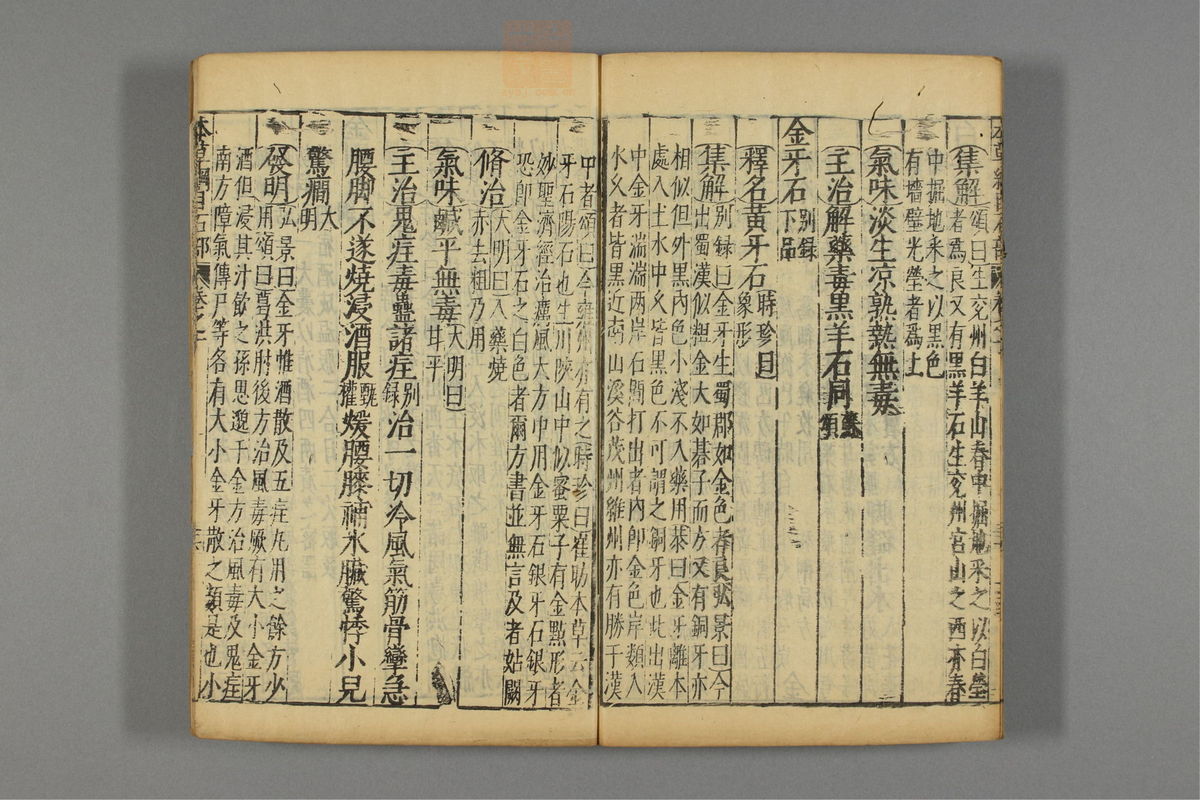 集解頌曰生兗州白羊山春中掘地采之以白瑩
者為良又有黑羊石生兗州宮山之西亦春
中掘地采之以黑色
有墻壁光瑩者為上
氣味淡生凉熟熱無毒
主治解藥毒黑羊石同蘇頌
金牙石別錄下品
釋名黃牙石時珍曰象形
集解別録曰金牙生蜀郡如金色者良弘景曰今
出蜀漢似粗金大如碁子而方又有銅牙亦
相似但外黑內色小淺不入藥用恭曰金牙離本
處入土水中久皆黑色不可謂之銅牙也此出漢
中金牙湍湍兩岸石間打出者內即金色岸頹入
水久者皆黑近南山溪谷茂州雒州亦有勝于漢
中者頌曰今雍州亦有之時珍曰崔昉本草云金
牙石陽石也生川陝山中似蜜栗子有金點形者
妙聖濟經治癘風大方中用金牙石銀牙石銀牙
恐即金牙石之白色者爾方書並無言及者姑闕
脩治大明曰入藥燒
赤去粗乃用
氣味鹹平無毒大明曰甘平
主治鬼疰毒蠱諸疰別錄治一切冷風氣筋骨攣急
腰脚不遂燒浸酒服甄權煖腰膝補水臟驚悸小兒
驚癇大明
發明弘景曰金牙惟酒散及五疰丸用之餘方少
用頌曰葛洪肘後方治風毒厥有大小金牙
酒但浸其汁飲之孫思邈千金方治風毒及鬼疰
南方瘴氣傳尸等各有大小金牙散之類是也小
本草綱目石部